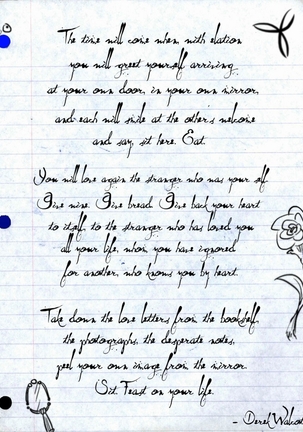 The time will come when with elation
you will greet yourself arriving
at your own door, in your own mirror,
and each will smile at the other's welcome
and say, sit here. Eat.
You will love again the stranger who was your self.
Give wine. Give bread. Give back your heart
to itself, to the stranger who has loved you
all your life, whom you have ignored
for another, who knows you by heart.
Take down the love letters from the bookshelf,
the photographs, the desperate notes,
peel your own image from the mirror.
Sit. Feast on your life.
- Derek Walcott